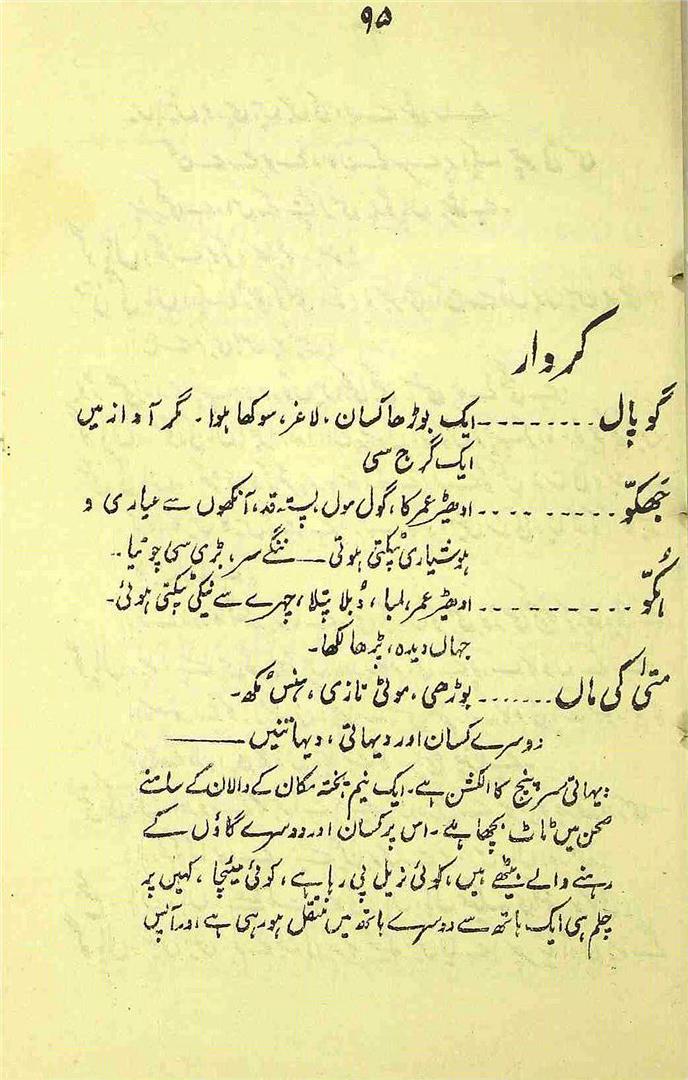 ۹۵
کردار
گوپال ........ ایک بوڑھا کسان، لاغر، سوکھا ہوا۔ مگر آواز میں
ایک گرج سی
جھکوّ ........ ادھیڑ عمر کا، گول مول پستہ قد، آنکھوں سے عیاری و
ہوشیاری ٹپکتی ہوتی — ننگے سر، بڑی سی چوٹیا۔
اُنکوّ ........ ادھیڑ عمر، لمبا، دُبلا پتلا، چہرے سے نیکی ٹپکتی ہوئی۔
جہاں دیدہ، پڑھا لکھا۔
متیٰ کی ماں ........ بوڑھی، موٹی تازی، ہنس مکھ۔
دوسرے کسان اور دیہاتی، دیہاتنیں ———
دیہاتی سرپنچ کا الکشن ہے۔ ایک نیم پختہ مکان کے دالان کے سامنے
صحن میں ٹاٹ بچھا ہے۔ اس پر کسان اور دوسرے گاؤں کے
رہنے والے بیٹھے ہیں، کوئی نریل پی رہا ہے، کوئی میٹچا، کہیں پر
چلم ہی ایک ہاتھ سے دوسرے ہاتھ میں منتقل ہو رہی ہے اور آپس